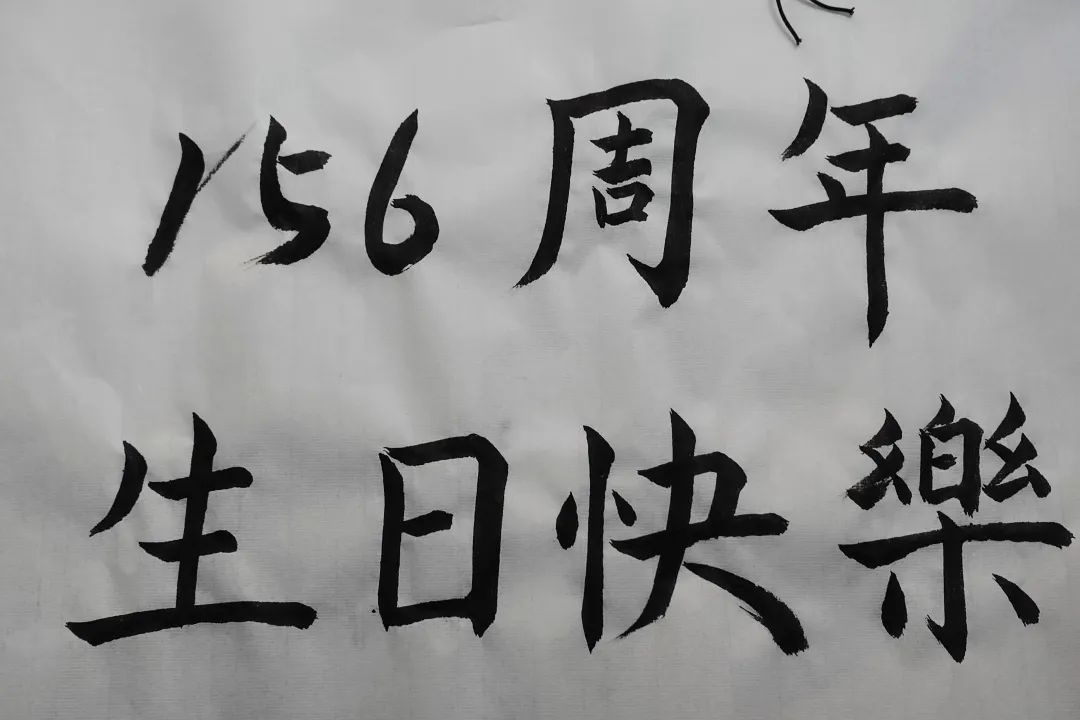 156周年
生日快樂